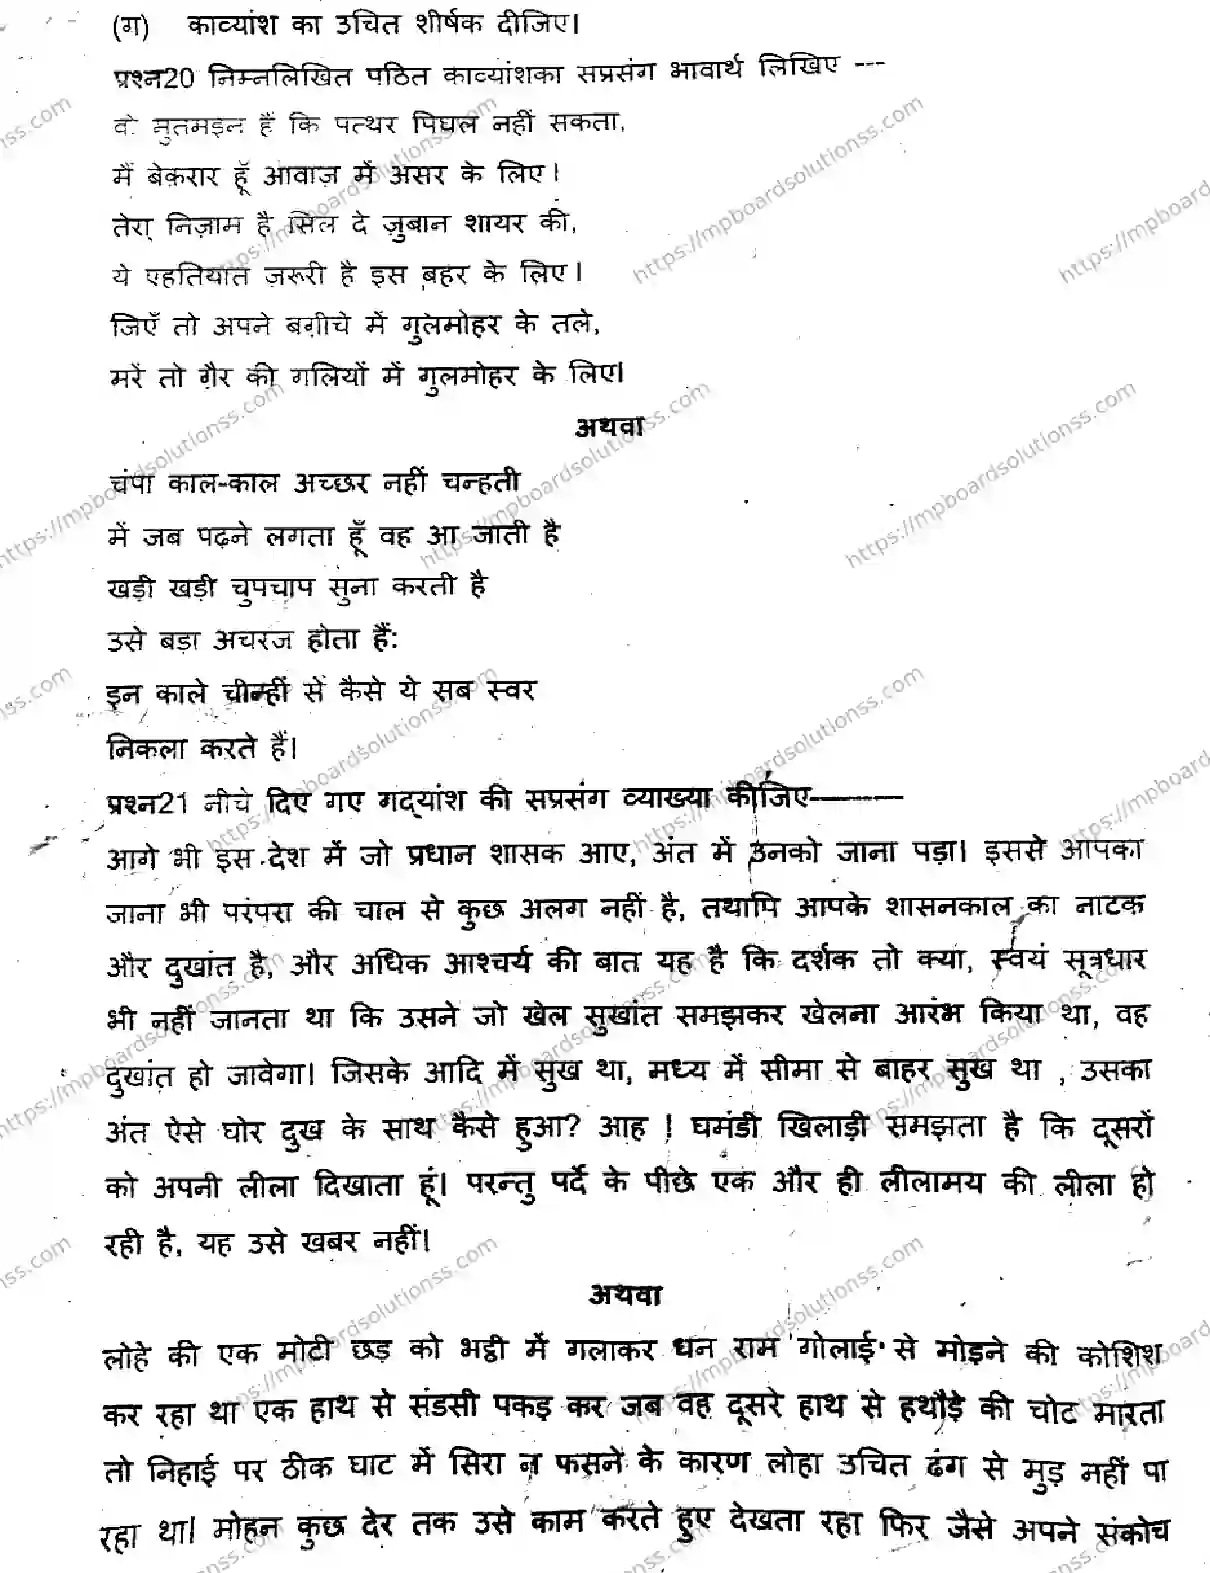 (ग) काव्यांश का उचित शीर्षक दीजिए।
प्रश्न20 निम्नलिखित पठित काव्यांशका सप्रसंग भावार्थ लिखिए ---
वे मुतमइन हैं कि पत्थर पिघल नहीं सकता,
मैं बेकरार हूँ आवाज़ में असर के लिए।
तेरा निज़ाम है सिल दे ज़ुबान शायर की,
ये एहतियात ज़रूरी है इस बहर के लिए।
जिएँ तो अपने बग़ीचे में गुलमोहर के तले,
मरें तो ग़ैर की गलियों में गुलमोहर के लिए।
अथवा
चंपा काल-काल अच्छर नहीं चन्हती
में जब पढ़ने लगता हूँ वह आ जाती है
खड़ी खड़ी चुपचाप सुना करती है
उसे बड़ा अचरज होता हैं:
इन काले चीन्हीं से कैसे ये सब स्वर
निकला करते हैं।
प्रश्न21 नीचे दिए गए गद्यांश की सप्रसंग व्याख्या कीजिए———
आगे भी इस देश में जो प्रधान शासक आए, अंत में उनको जाना पड़ा। इससे आपका
जाना भी परंपरा की चाल से कुछ अलग नहीं है, तथापि आपके शासनकाल का नाटक
और दुखांत है, और अधिक आश्चर्य की बात यह है कि दर्शक तो क्या, स्वयं सूत्रधार
भी नहीं जानता था कि उसने जो खेल सुखांत समझकर खेलना आरंभ किया था, वह
दुखांत हो जावेगा। जिसके आदि में सुख था, मध्य में सीमा से बाहर सुख था , उसका
अंत ऐसे घोर दुख के साथ कैसे हुआ? आह ! घमंडी खिलाड़ी समझता है कि दूसरों
को अपनी लीला दिखाता हूं। परन्तु पर्दे के पीछे एक और ही लीलामय की लीला हो
रही है, यह उसे खबर नहीं।
अथवा
लोहे की एक मोटी छड़ को भट्ठी में गलाकर धन राम गोलाई से मोड़ने की कोशिश
कर रहा था एक हाथ से संडसी पकड़ कर जब वह दूसरे हाथ से हथौड़े की चोट मारता
तो निहाई पर ठीक घाट में सिरा न फसने के कारण लोहा उचित ढंग से मुड़ नहीं पा
रहा था। मोहन कुछ देर तक उसे काम करते हुए देखता रहा फिर जैसे अपने संकोच
https://mpboardsolutionss.com